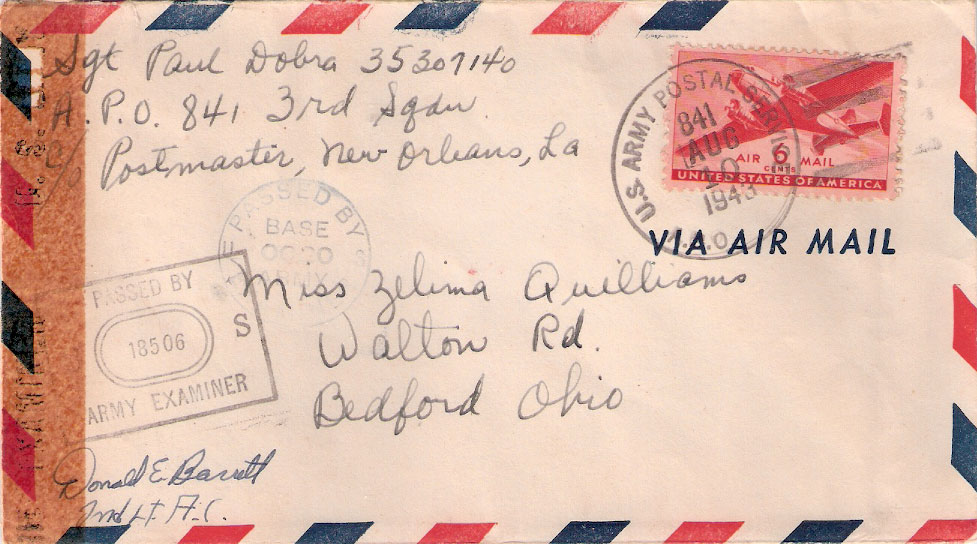 Sgt Paul Dobra 35307140
A.P.O. 841 3rd Sqdn
Postmaster, New Orleans, La
U.S. ARMY POSTAL SERVICE
841
AUG
10
1943
A.P.O.
AIR 6 MAIL
CENTS
UNITED STATES OF AMERICA
VIA AIR MAIL
PASSED BY
BASE
0020
ARMY
Miss Zelima Quilliams
Walton Rd.
Bedford Ohio
PASSED BY
S
18506
ARMY EXAMINER
Donald E. Barrett
2nd Lt. A.C.